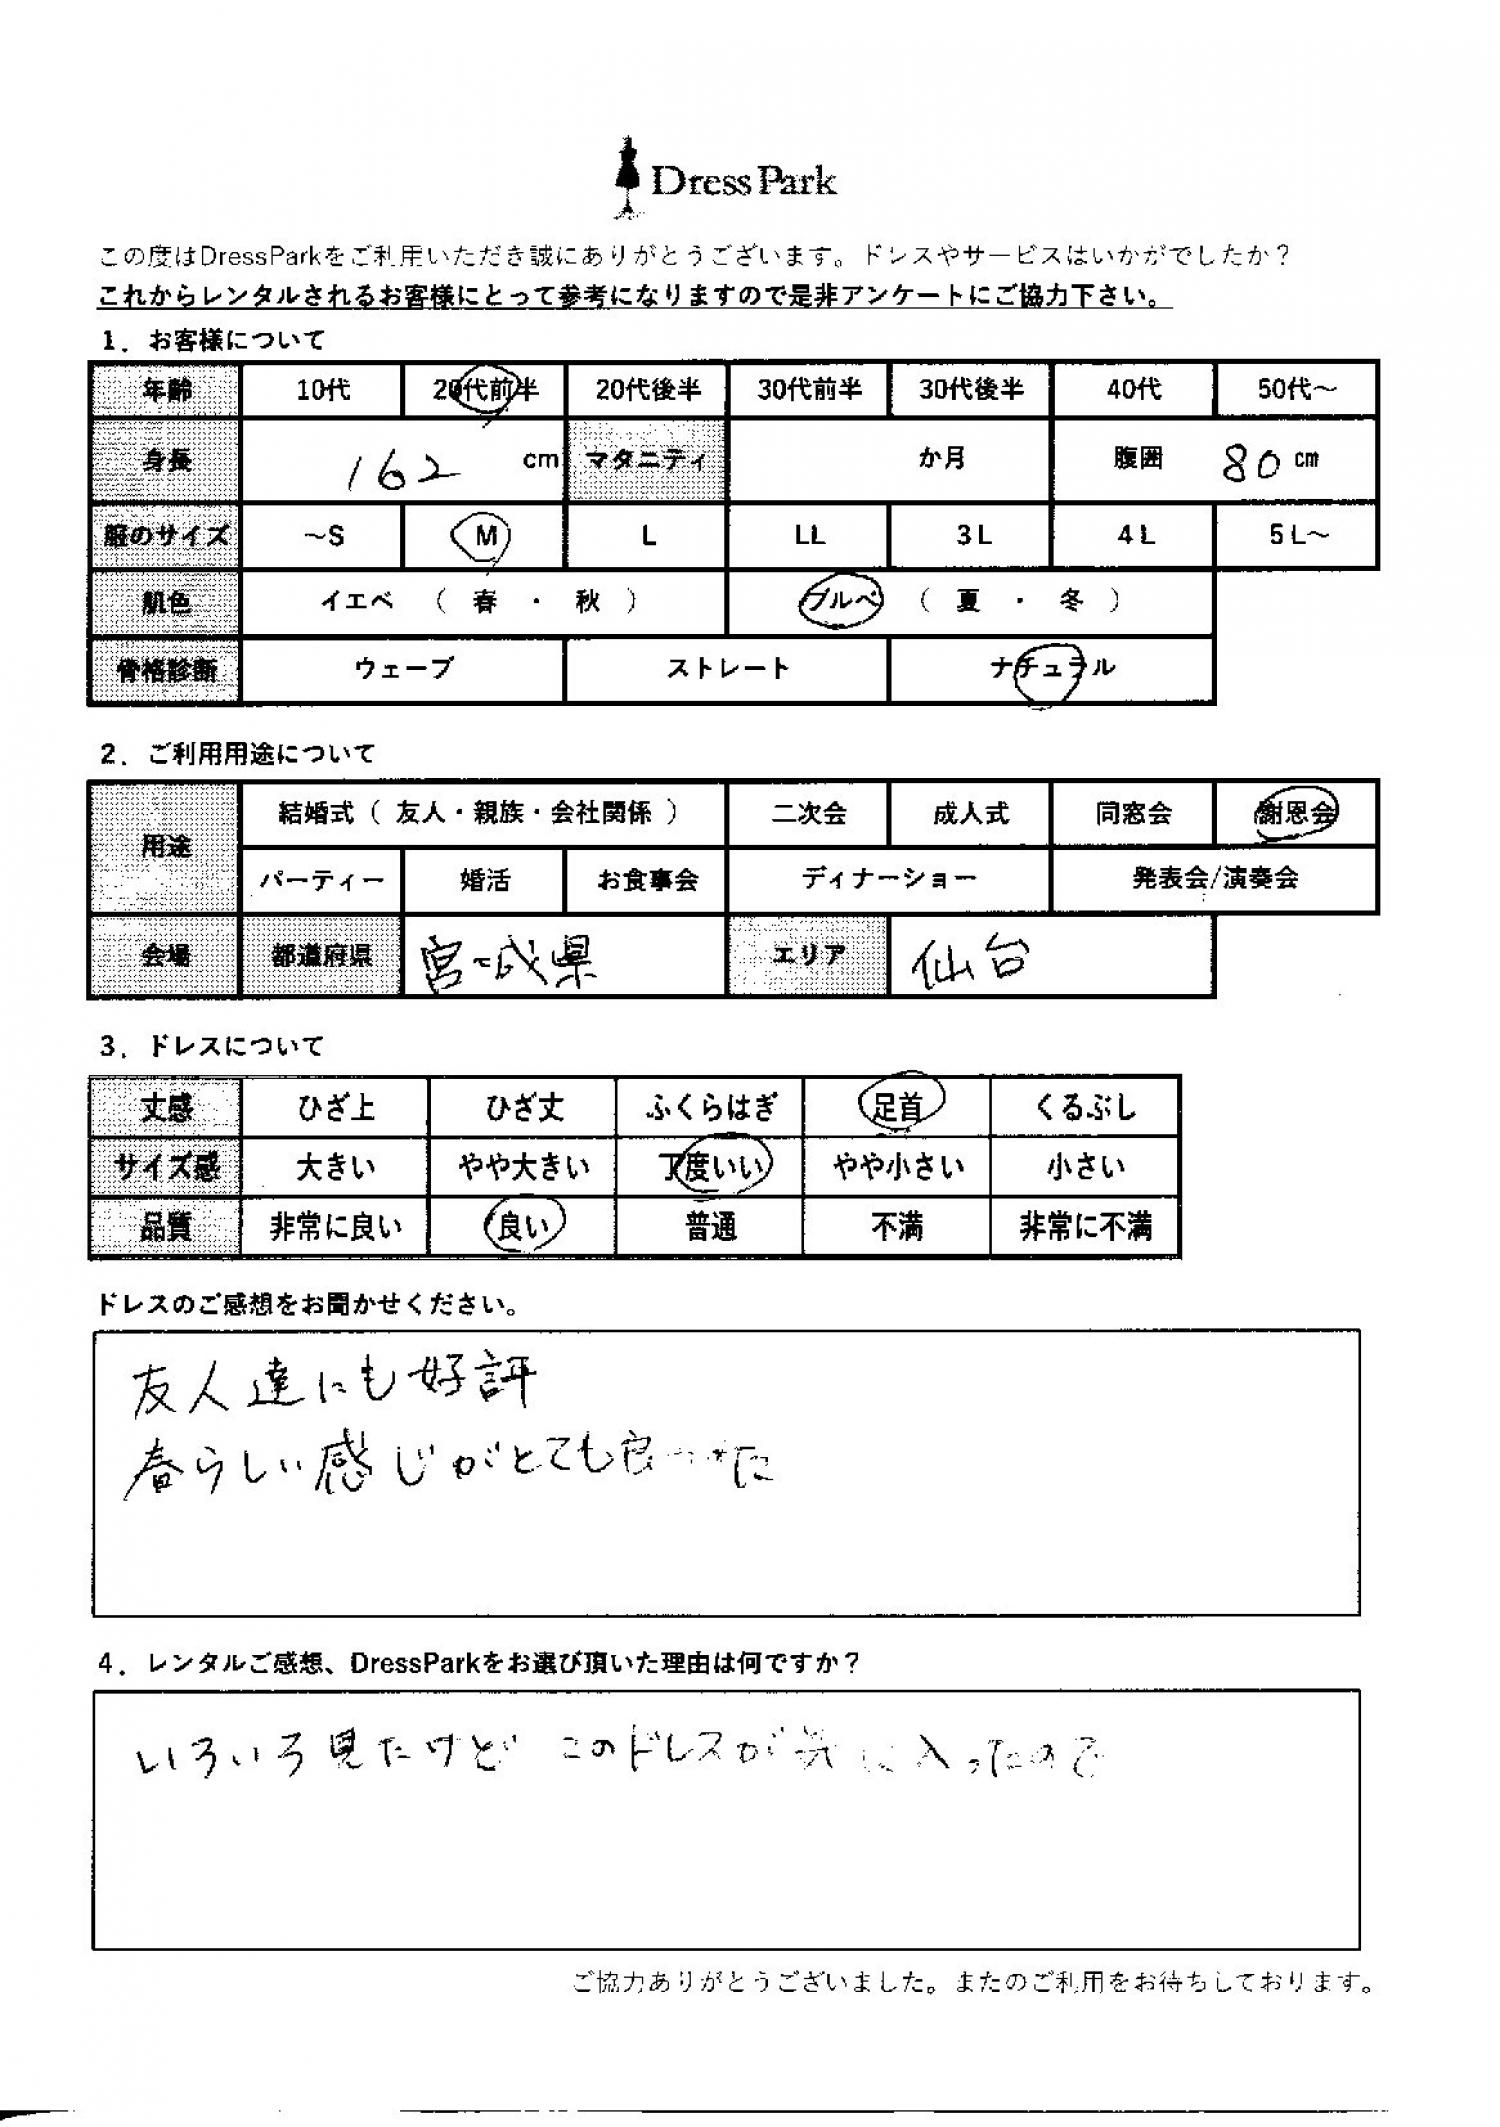 Dress Park
この度はDressParkをご利用いただき誠にありがとうございます。ドレスやサービスはいかがでしたか？
これからレンタルされるお客様にとって参考になりますので是非アンケートにご協力下さい。
1．お客様について
年齢 10代 20代前半 20代後半 30代前半 30代後半 40代 50代～
身長 162 cm マタニティ か月 腹囲 80 cm
服のサイズ ～S M L LL 3L 4L 5L～
肌色 イエベ （ 春 ・ 秋 ） ブルベ （ 夏 ・ 冬 ）
骨格診断 ウェーブ ストレート ナチュラル
2．ご利用用途について
用途 結婚式（ 友人・親族・会社関係 ） 二次会 成人式 同窓会 謝恩会
パーティー 婚活 お食事会 ディナーショー 発表会/演奏会
会場 都道府県 宮城県 エリア 仙台
3．ドレスについて
丈感 ひざ上 ひざ丈 ふくらはぎ 足首 くるぶし
サイズ感 大きい やや大きい 丁度いい やや小さい 小さい
品質 非常に良い 良い 普通 不満 非常に不満
ドレスのご感想をお聞かせください。
友人達にも好評
春らしい感じがとても良かった
4．レンタルご感想、DressParkをお選び頂いた理由は何ですか？
いろいろ見たけど このドレスが気に入ったので
ご協力ありがとうございました。またのご利用をお待ちしております。